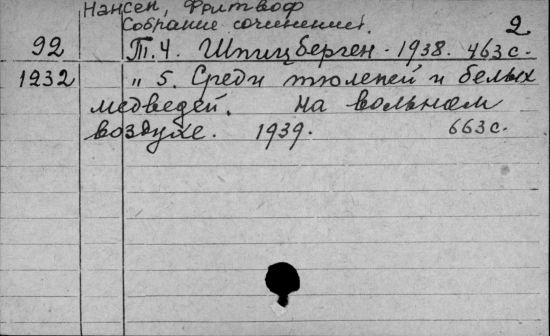 Нансен, Фритьоф
Собрание сочинений.
2
92 Т. 4. Шпицберген. 1938. 463 с.
1232 " 5. Среди тюленей и белых
медведей. На вольном
воздухе. 1939. 663 с.